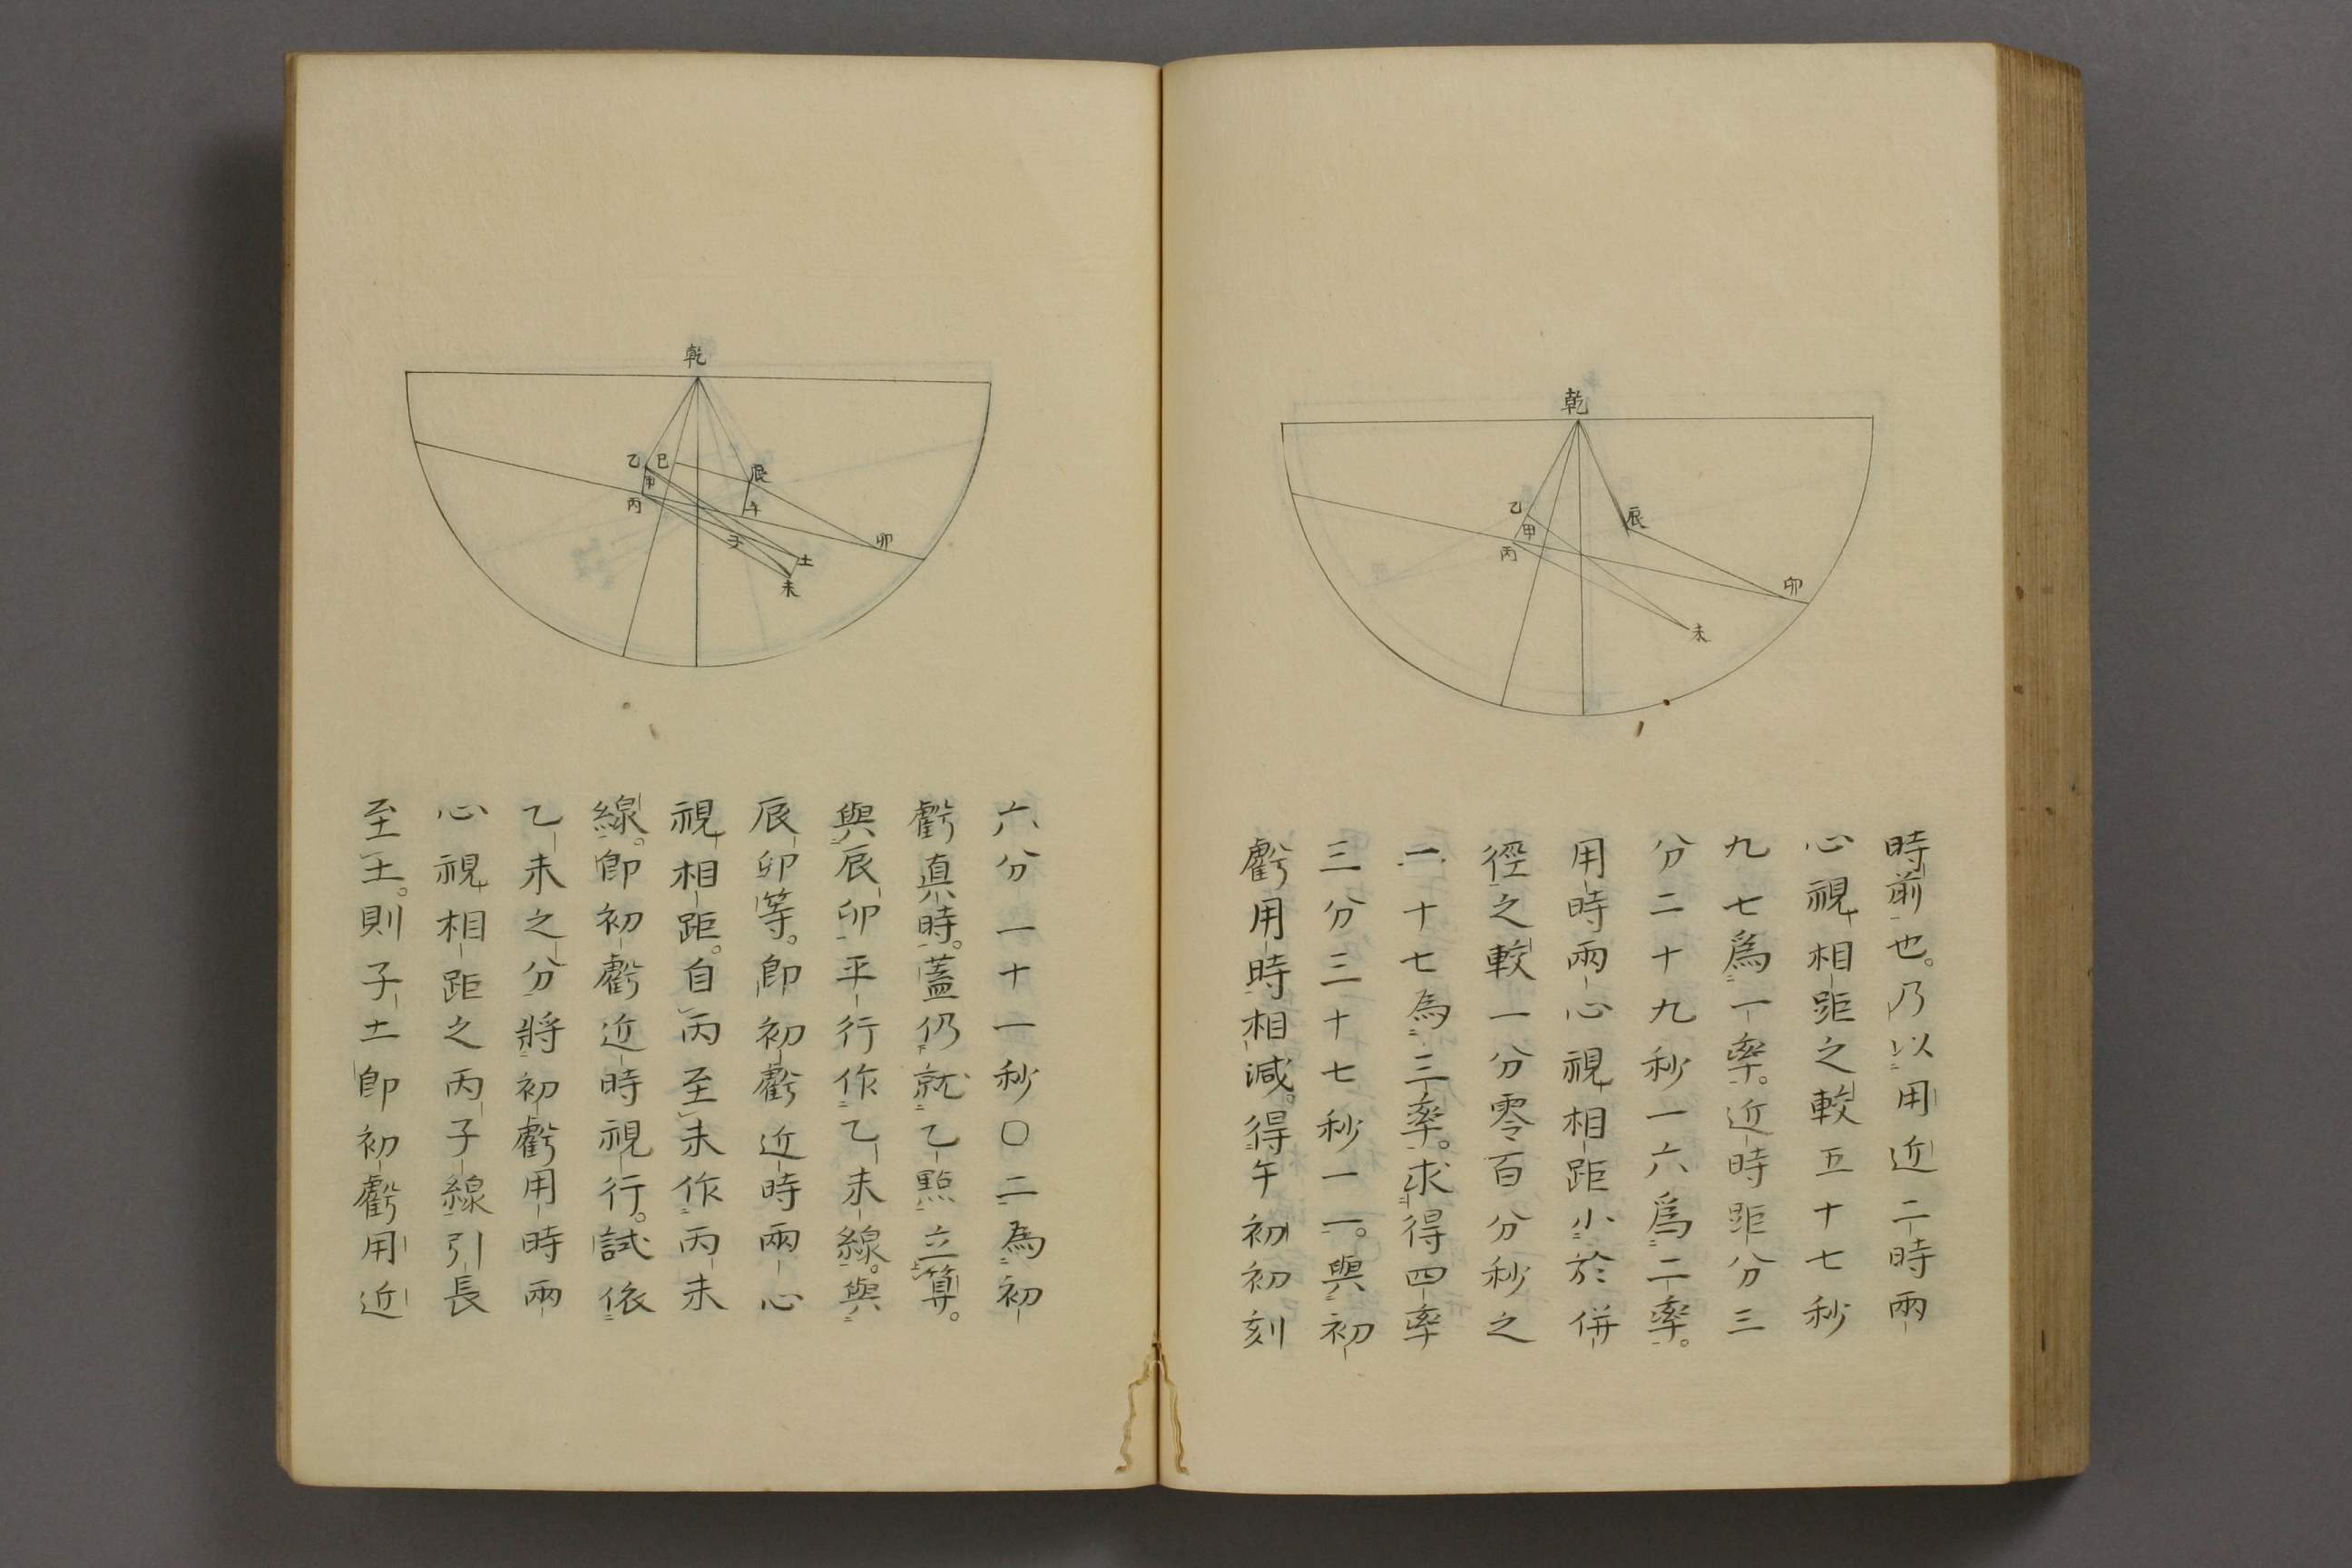 乾
乙
甲
丙
辰
卯
未
時前也。乃以用近二時兩
心視相距之較五十七秒
九七爲一率。近時距分三
分二十九秒一六爲二率。
用時兩心視相距小於併
徑之較一分零百分秒之
一十七為三率。求得四率
三分三十七秒一一。與初
虧用時相減。得午初初刻
乾
乙
巳
甲
丙
辰
午
子
卯
土
未
六分一十一秒〇二為初
虧真時。蓋仍就乙點立算。
與辰卯平行作乙未線。與
辰卯等。即初虧近時兩心
視相距。自丙至未作丙未
線。即初虧近時視行。試依
乙未之分將初虧用時兩
心視相距之丙子線引長
至土。則子土即初虧用近